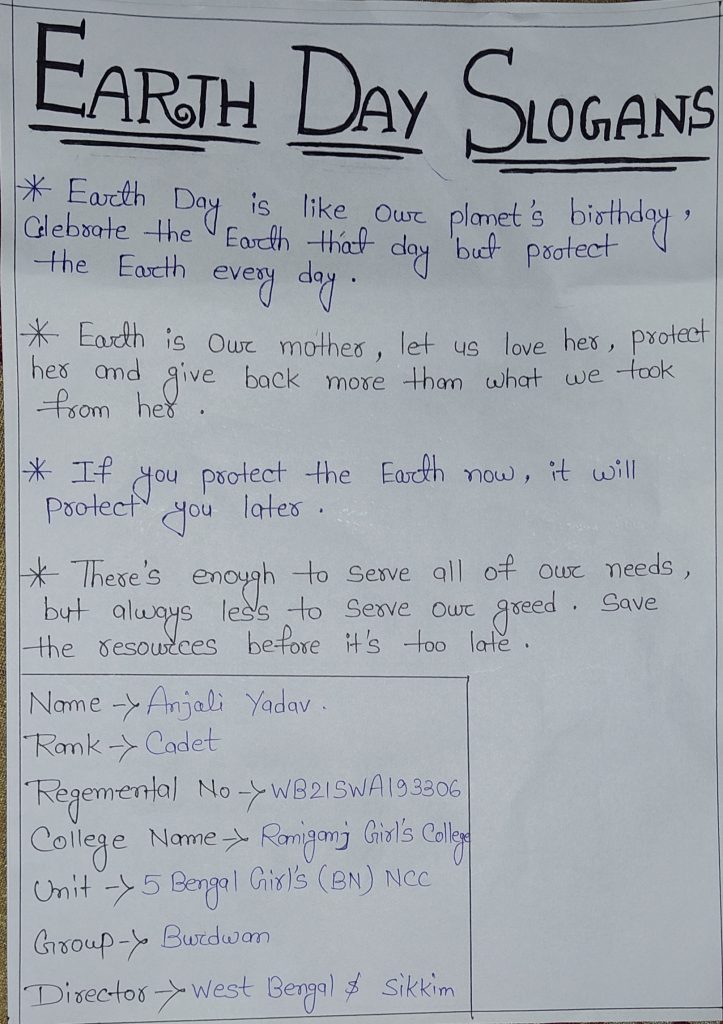 EARTH DAY SLOGANS
* Earth Day is like our planet's birthday,
Celebrate the Earth that day but protect
the Earth every day.
* Earth is our mother, let us love her, protect
her and give back more than what we took
from her.
* If you protect the Earth now, it will
protect you later.
* There's enough to serve all of our needs,
but always less to serve our greed. Save
the resources before it's too late.
Name -> Anjali Yadav.
Rank -> Cadet
Regemental No -> WB21SWA193306
College Name -> Raniganj Girl's College
Unit -> 5 Bengal Girl's (BN) NCC
Group -> Burdwan
Director -> West Bengal & Sikkim